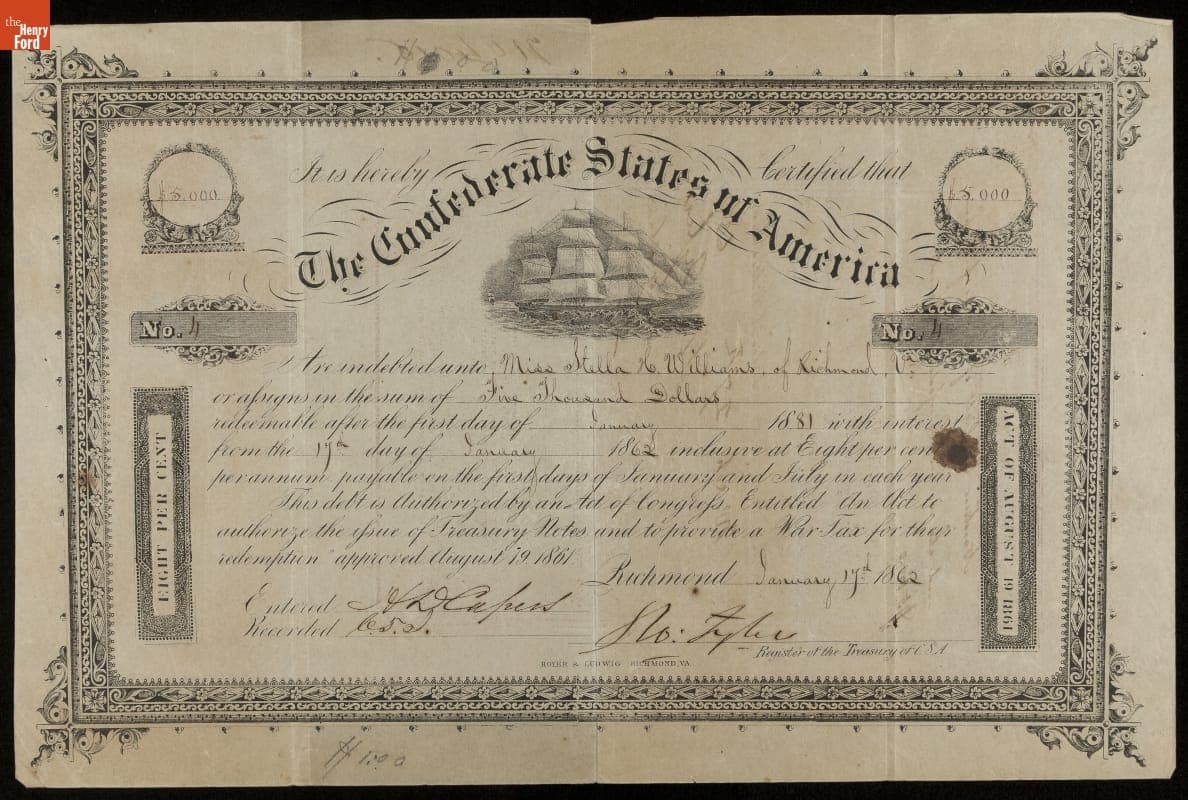 the
Henry
Ford
It is hereby Certified that
The Confederate States of America
$5.000
$5.000
No. 4
No. 4
Are indebted unto Miss Stella H. Williams, of Richmond, Va
or assigns in the sum of Five Thousand Dollars
redeemable after the first day of January 1881 with interest
from the 17th day of January 1862 inclusive at Eight per cent
per annum payable on the first days of January and July in each year
This debt is Authorized by an Act of Congress Entitled "An Act to
authorize the issue of Treasury Notes and to provide a War Tax for their
redemption" approved August 19. 1861.
EIGHT PER CENT
ACT OF AUGUST 19 1861
Richmond January 17th 1862
Entered H D Capers
Recorded C.T.J.
Ro: Tyler
Register of the Treasury of C.S.A.
HOYER & LUDWIG RICHMOND, VA.